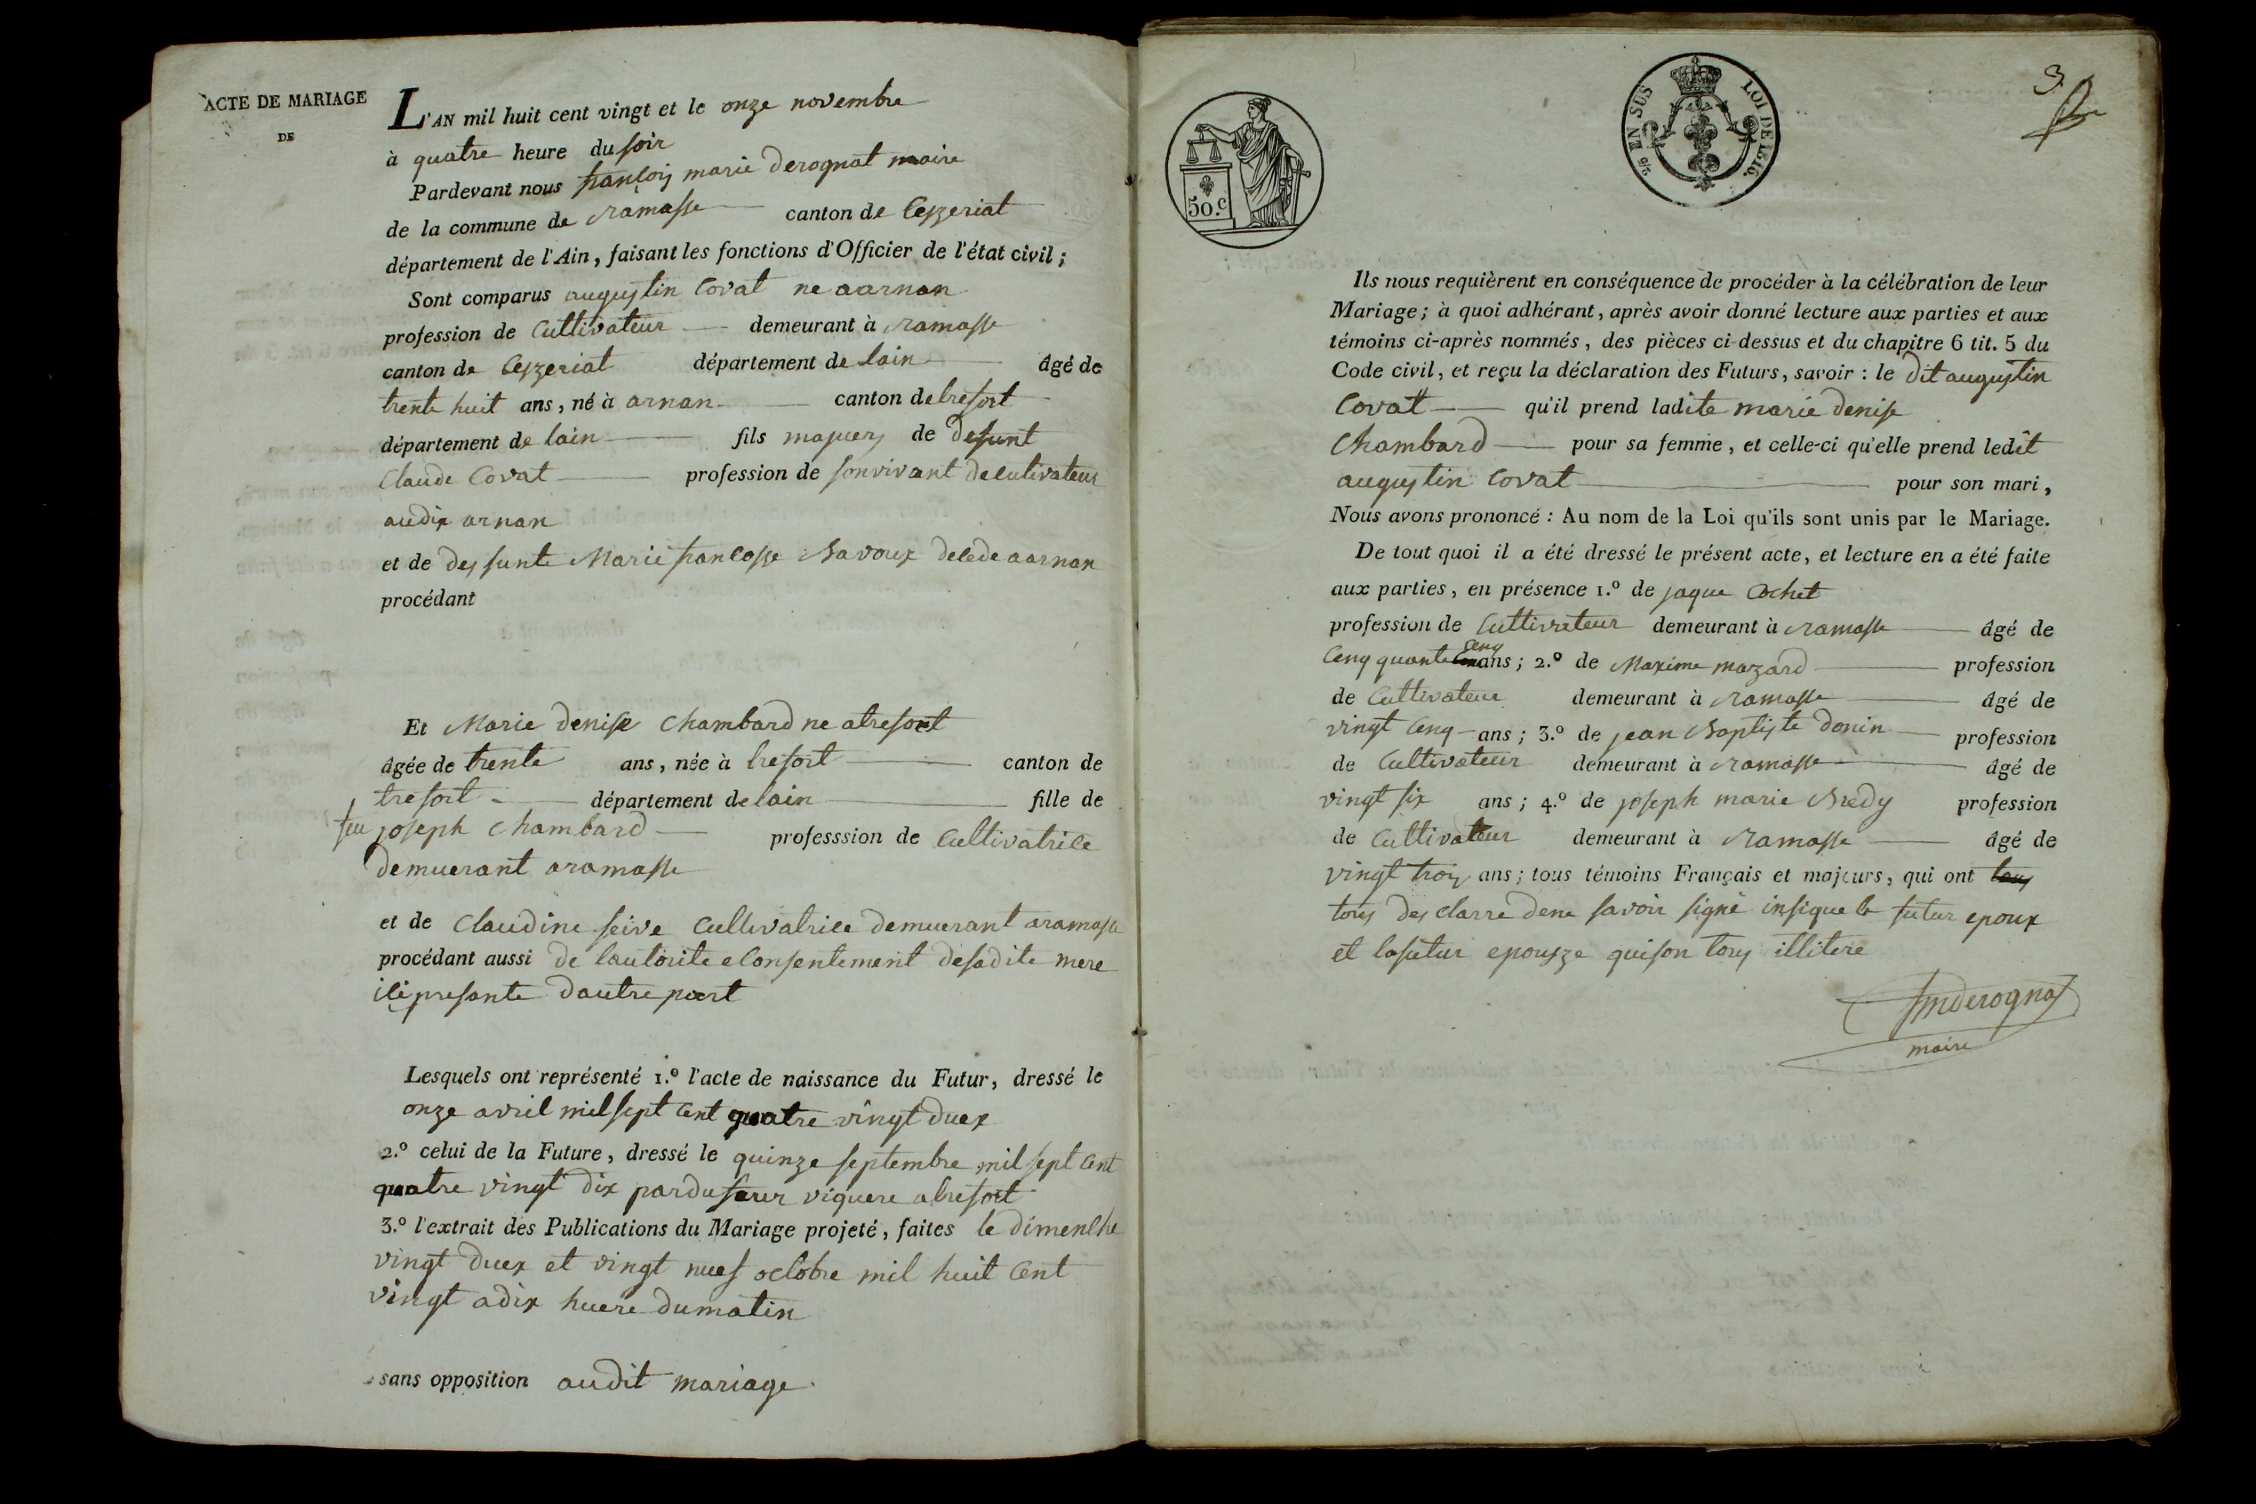 ACTE DE MARIAGE
DE
L'AN mil huit cent vingt et le onze novembre
à quatre heure du soir
Pardevant nous françois marie derognat maire
de la commune de ramasse canton de Ceyzeriat
département de l'Ain, faisant les fonctions d'Officier de l'état civil;
Sont comparus augustin Covat ne a arnan
profession de Cultivateur demeurant à ramasse
canton de Ceyzeriat département de lain âgé de
trente huit ans, né à arnan canton de trefort
département de lain fils majuers de defunt
Claude Covat profession de sonvivant de cutivateur
audix arnan
et de desfunte Marie francosse Savoux decede a arnan
procédant
Et Marie denise Chambard ne atrefort
âgée de trente ans, née à trefort canton de
trefort département de lain fille de
feu joseph Chambard professsion de Cultivatrice
demuerant aramasse
et de Claudine seive Cultivatrice demuerant aramasse
procédant aussi de lautorite e Consentement desadite mere
ici presante dautre part
Lesquels ont représenté 1.º l'acte de naissance du Futur, dressé le
onze avril mil sept cent quatre vingt duex
2.º celui de la Future, dressé le quinze septembre mil sept cent
quatre vingt dix par du sieur viguere atrefort
3.º l'extrait des Publications du Mariage projeté, faites le dimenche
vingt duex et vingt nuef octobre mil huit Cent
vingt a dix huere dumatin
sans opposition audit mariage
50.c
EN SUS
LOI DE 1816.
3.
Ils nous requièrent en conséquence de procéder à la célébration de leur
Mariage; à quoi adhérant, après avoir donné lecture aux parties et aux
témoins ci-après nommés, des pièces ci-dessus et du chapitre 6 tit. 5 du
Code civil, et reçu la déclaration des Futurs, savoir: le dit augustin
Covat qu'il prend ladite marie denise
Chambard pour sa femme, et celle-ci qu'elle prend ledit
augustin Covat pour son mari,
Nous avons prononcé: Au nom de la Loi qu'ils sont unis par le Mariage.
De tout quoi il a été dressé le présent acte, et lecture en a été faite
aux parties, en présence 1.º de jaque Cochet
profession de Cultivateur demeurant à ramasse âgé de
Cenq quante Cenq ans; 2.º de Maxime mazard profession
de Cultivateur demeurant à ramasse âgé de
vingt Cenq ans; 3.º de jean Baptiste donin profession
de Cultivateur demeurant à ramasse âgé de
vingt six ans; 4.º de joseph marie Bredy profession
de Cultivateur demeurant à ramasse âgé de
vingt trois ans; tous témoins Français et majeurs, qui ont tous
tous des clarre dene savoir signé insique le futur epoux
et lafutur epousze quison tous illitere
fmderognat
maire